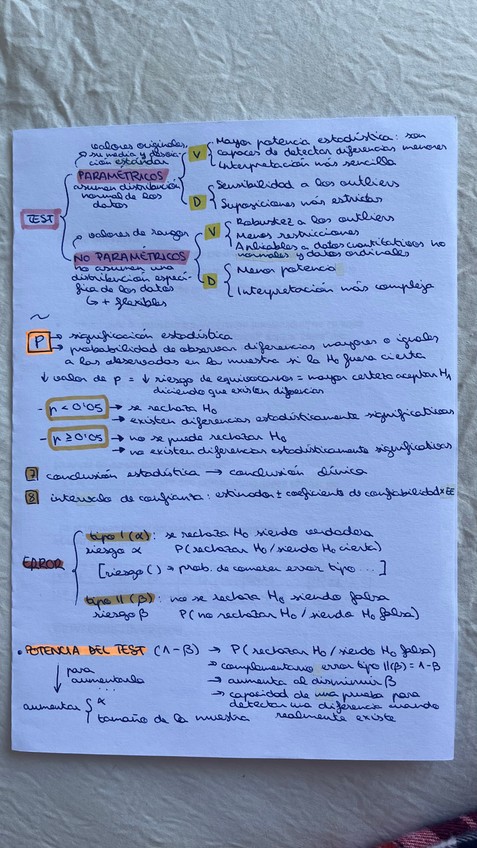 valores originales,
su media y desvia-
ción estándar
PARAMÉTRICOS
asumen distribución
normal de los
datos
V
Mayor potencia estadística: son
capaces de detectar diferencias menores
Interpretación más sencilla
D
Sensibilidad a los outliers
Suposiciones más estrictas
TEST
valores de rangos
NO PARAMÉTRICOS
no asumen una
distribución especí-
fica de los datos
↳ + flexibles
V
Robustez a los outliers
Menos restricciones
Aplicables a datos cuantitativos no
normales y datos ordinales
D
Menor potencia
Interpretación más compleja
~
P → significación estadística
→ probabilidad de observar diferencias mayores o iguales
a las observadas en la muestra si la H₀ fuera cierta
↓ valor de p = ↓ riesgo de equivocarnos = mayor certeza aceptar H₁
diciendo que existen diferencias
- p < 0'05 → se rechaza H₀
→ existen diferencias estadísticamente significativas
- p ≥ 0'05 → no se puede rechazar H₀
→ no existen diferencias estadísticamente significativas
7 conclusión estadística → conclusión clínica
8 intervalo de confianza: estimador ± coeficiente de confiabilidad × EE
ERROR
tipo I (α): se rechaza H₀ siendo verdadera
riesgo α P(rechazar H₀/siendo H₀ cierta)
[riesgo () → prob. de cometer error tipo ...]
tipo II (β): no se rechaza H₀ siendo falsa
riesgo β P(no rechazar H₀/siendo H₀ falsa)
• POTENCIA DEL TEST (1-β) → P(rechazar H₀/siendo H₀ falsa)
→ complementario error tipo II(β) = 1-β
→ aumenta al disminuir β
→ capacidad de una prueba para
detectar una diferencia cuando
realmente existe
para
aumentarla
...
aumentar { α
tamaño de la muestra